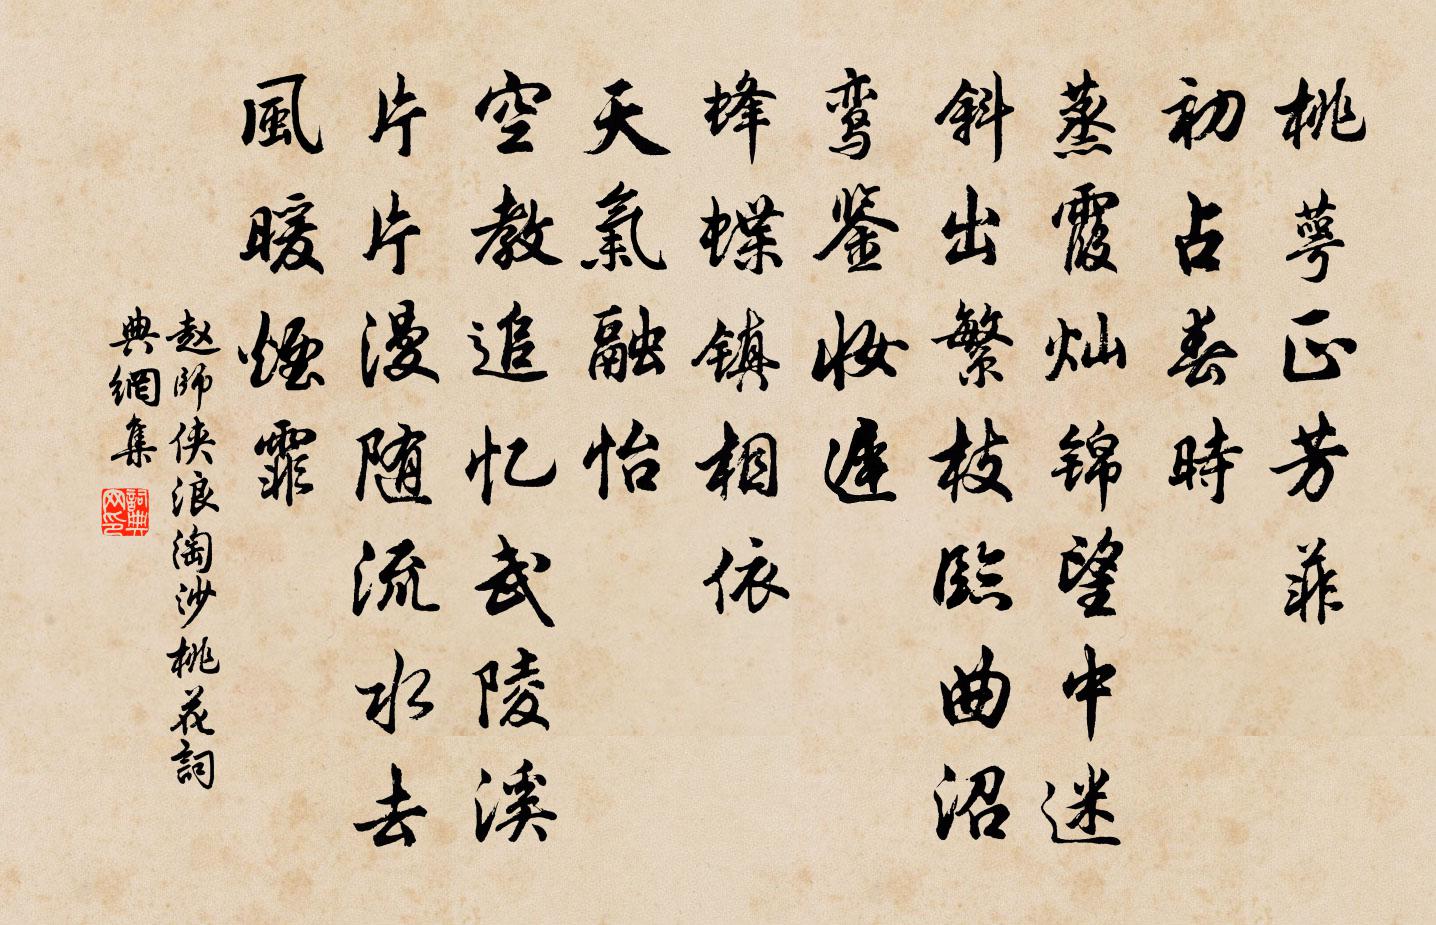 桃萼正芳菲
初占春時
蒸霞灿锦望中迷
斜出繁枝臨曲沼
鸾鉴妆遲
蜂蝶镇相依
天氣融怡
空教追忆武陵溪
片片漫随流水去
風暖煙霏
赵師侠浪淘沙桃花詞
典網集
詞典网印